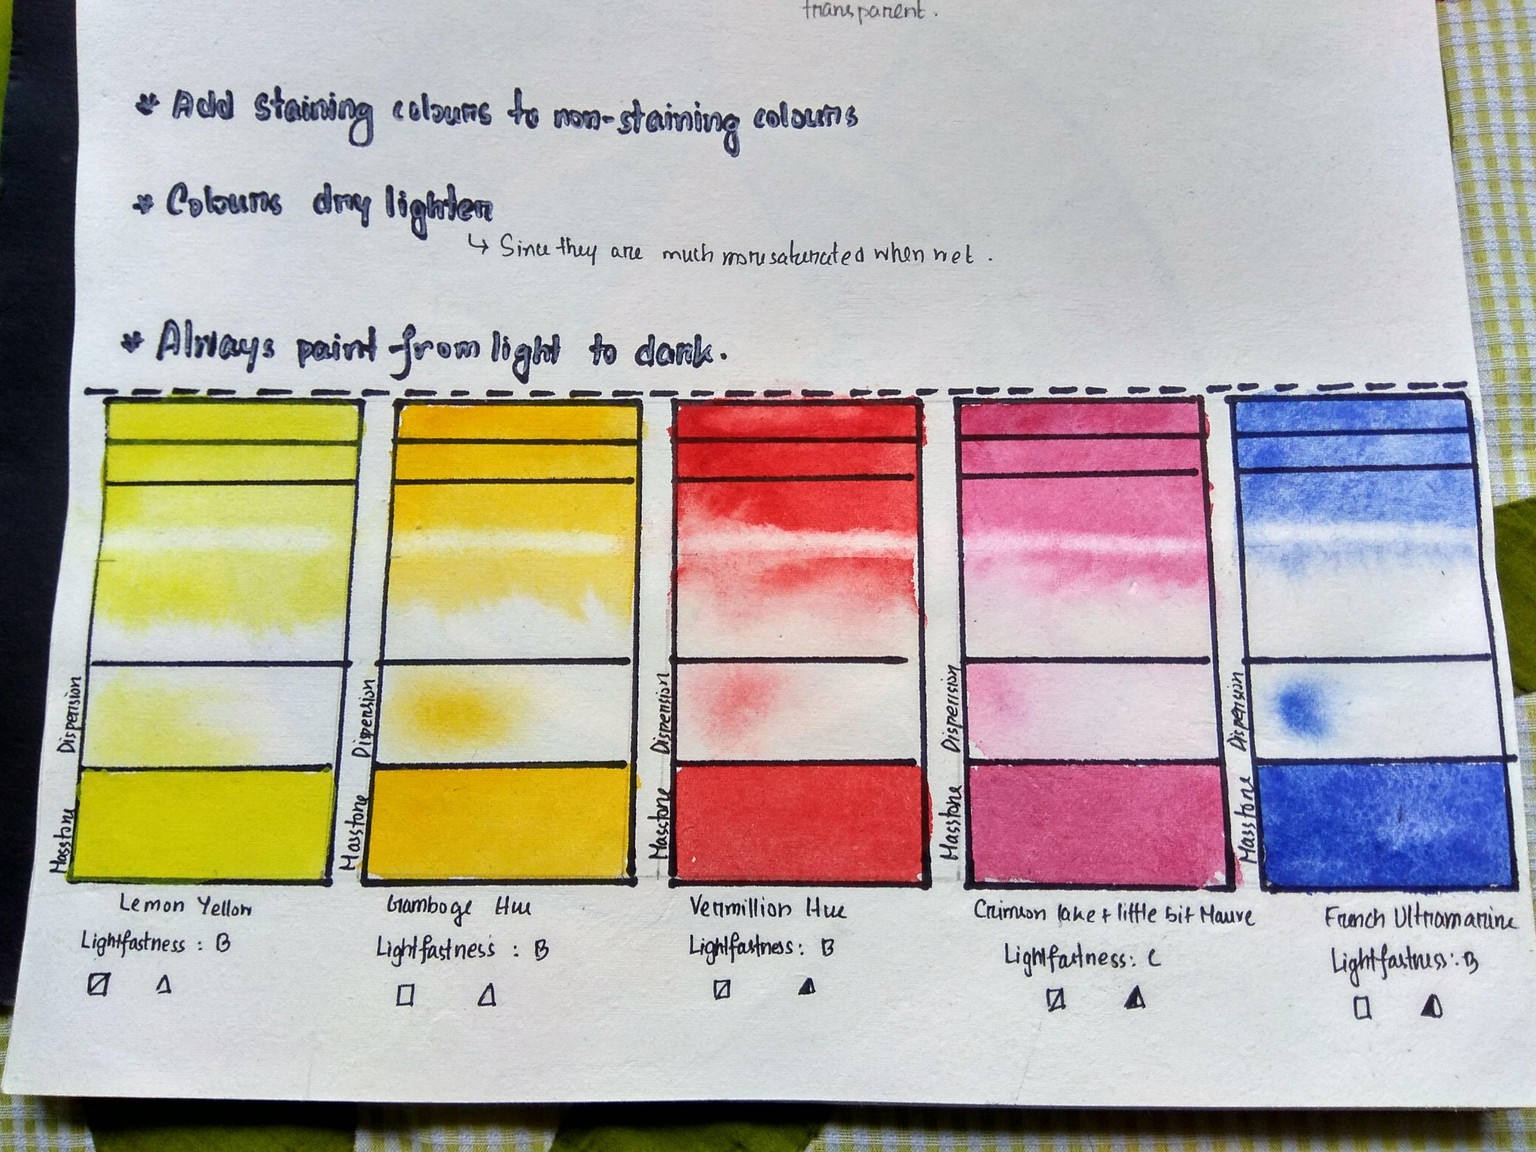 transparent.
* Add staining colours to non-staining colours
* Colours dry lighter
↳ Since they are much more saturated when wet.
* Always paint from light to dark.
Dispersion
Masstone
Dispersion
Masstone
Dispersion
Masstone
Dispersion
Masstone
Dispersion
Masstone
Lemon Yellow
Lightfastness : B
Gamboge Hue
Lightfastness : B
Vermillion Hue
Lightfastness : B
Crimson lake + little bit Mauve
Lightfastness : C
French Ultramarine
Lightfastness : B